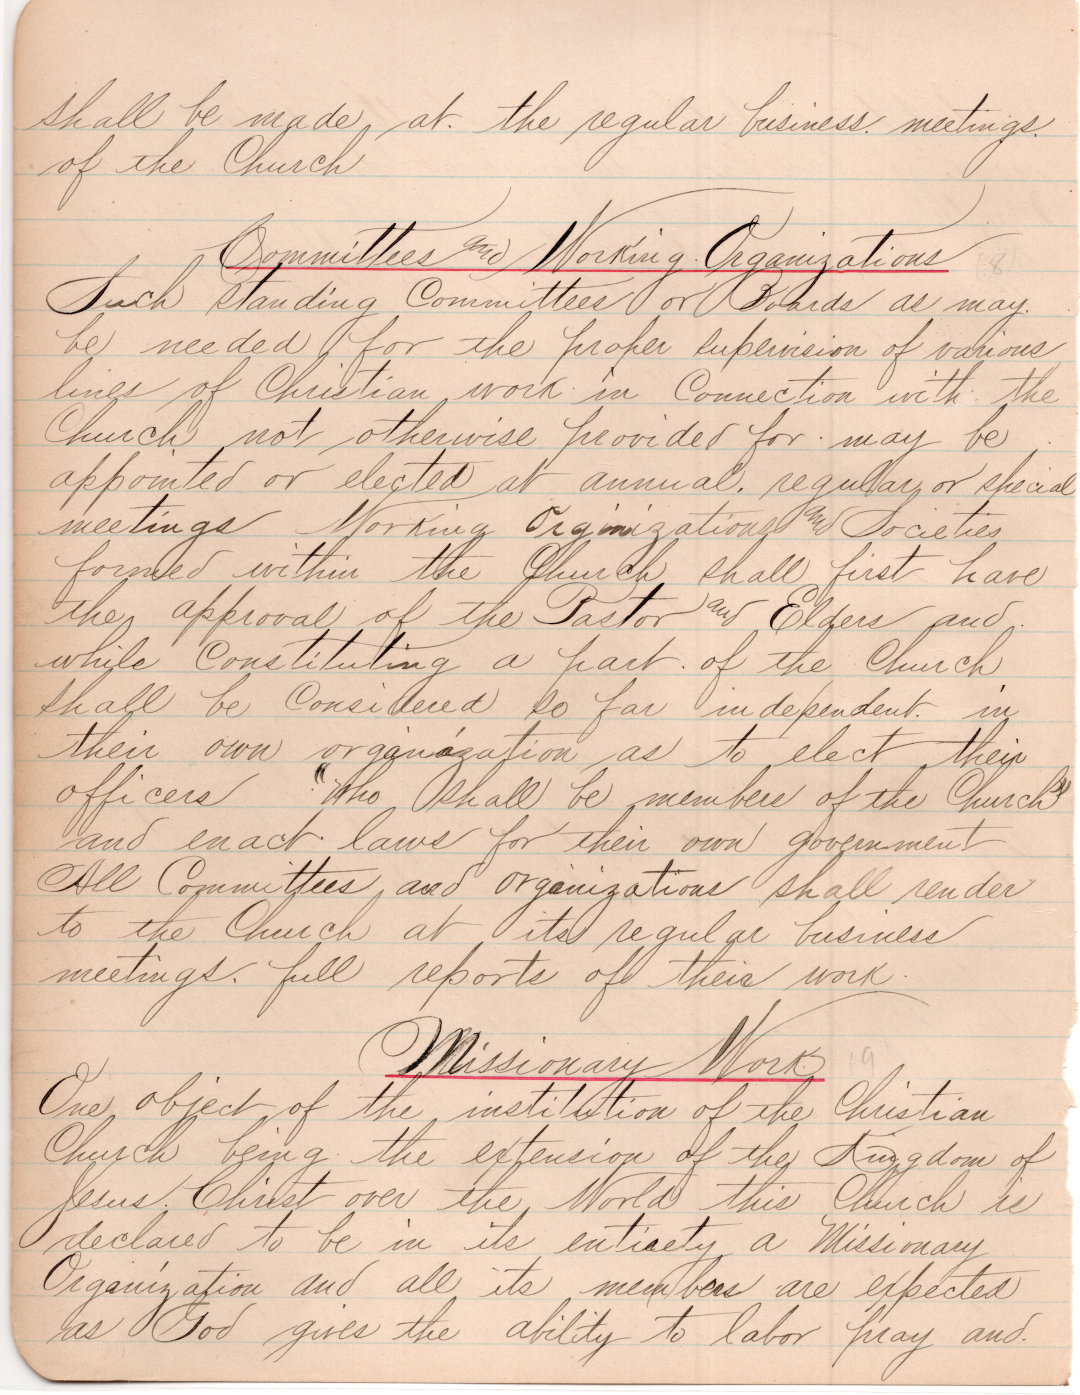 shall be made, at. the regular business. meetings.
of the Church
Committees and Working Organizations
(8)
Such standing Committees or Boards as may.
be needed for the proper supervision of various
lines of Christian work in Connection with the
Church not otherwise provided for. may be
appointed or elected at annual, regular, or special
meetings Working Organizations and Societies
formed within the Church shall first have
the, approval of the Pastor and Elders and.
while Constituting a part. of the Church
shall be Considered so far independent. in
their own organization as to elect their
officers "who shall be members of the Church"
and enact laws for their own government
All Committees, and organizations shall render
to the Church at its regular business
meetings. full reports of their work.
Missionary Work
(9)
One object of the institution of the Christian
Church being the extension of the Kingdom of
Jesus Christ over the World this Church is
declared to be in its entirety a Missionary
Organization and all its members are expected
as God gives the ability to labor pray and.